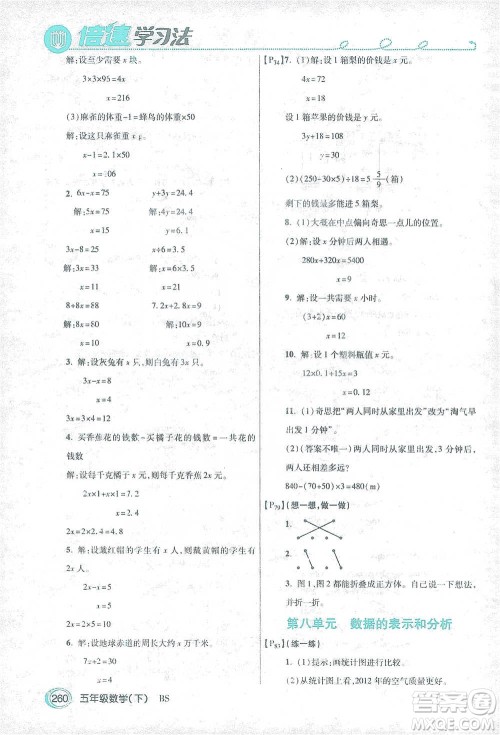 倍速学习法
解:设至少需要 x 块。
3×3×95=4x
x=216
(3)麻雀体重-1=蜂鸟的体重×50
解:设这只麻雀重 x 克。
x-1=2.1×50
x=106
2. 6x-x=75 y+3y=24.4
解:5x=75 解:4y=24.4
x=15 y=6.1
3x-8=25 3x+x=84
解:3x=33 解:4x=84
x=11 x=21
8+8x=88 9x+x=9
解:8x=80 解:10x=9
x=10 x=0.9
3. 解:设灰兔有 x 只,则白兔有 3x 只。
3x-x=24
x=12
3x=3×12=36
4. 买香蕉花的钱数-买橘子花的钱数=一共花的
钱数
解:设每千克橘子 x 元,每千克香蕉 2x 元。
2x×1+x=7.2
x=2.4
2x=2×2.4=4.8
5. 解:设戴红帽的学生有 x 人,则戴黄帽的学生有
2x 人。
2x-x=5
x=5
2x=2×5=10
6. 解:设地球赤道的周长大约 x 万千米。
7x+2=30
x=4
[P74]7. (1)解:设 1 箱梨的价钱是 x 元。
4x=72
x=18
设 1 箱苹果的价钱是 y 元。
3y+18=108
y=30
(2)(250-30×5)÷18=5 5/9(箱)
剩下的钱最多能进 5 箱梨。
8. (1)大概在中点偏向奇思一点儿的位置。
(2)解:设 x 分钟后两人相遇。
280x+320x=5400
x=9
9. 解:设一共需要 x 小时。
(3+2)x=15
x=3
10. 解:设 1 个塑料瓶值 x 元。
12×0.1+9x=2.28
x=0.12
11. (1)奇思把“两人同时从家里出发”改成“淘气早
出发 1 分钟”。
(2)(答案不唯一)两人同时从家里出发,3 分钟
后相距多少米?
840-(70+50)×3=480(m)
[P79](想一想,做一做)
1.
2.
3. 图 1,图 2 都能折叠成正方体。
第八单元 数据的表示和分析
[P83](练一练)
1. (1)(提示:画统计图
(2)从统计图看出,2012 年的空气质量更好一些。
260 五年级数学(下) BS